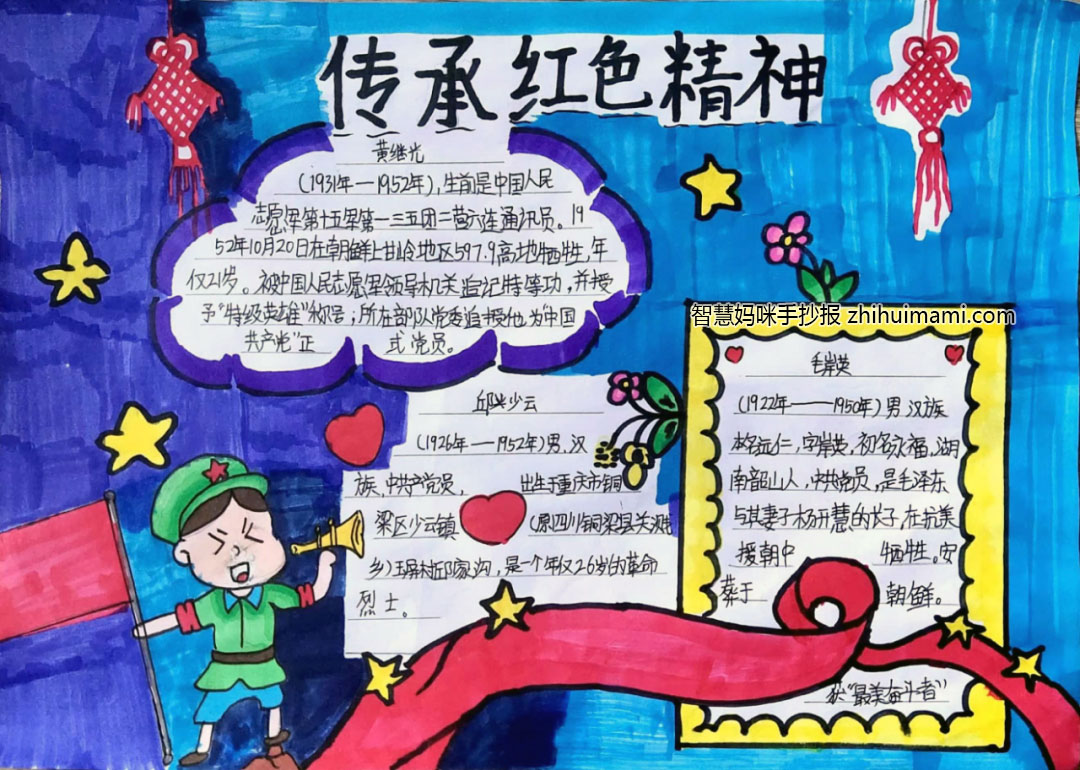 传承红色精神
黄继光
(1931年—1952年),生前是中国人民
志愿军第十五军第一三五团二营六连通讯员。19
52年10月20日在朝鲜上甘岭地区597.9高地牺牲,年
仅21岁。被中国人民志愿军领导机关追记特等功,并授
予“特级英雄”称号;所在部队党委追授他为“中国
共产党”正式党员。
智慧妈咪手抄报 zhihuimami.com
邱少云
(1926年—1952年)男,汉
族,中共产党员,出生于重庆市铜
梁区少云镇(原四川铜梁县关溅
乡)玉屏村邱家沟,是一个年仅26岁的革命
烈士。
毛岸英
(1922年——1950年)男 汉族
本名远仁,字岸英,初名永福,湖
南韶山人,中共党员,是毛泽东
与其妻子杨开慧的长子,在抗美
援朝中牺牲。安
葬于朝鲜。
获“最美奋斗者”